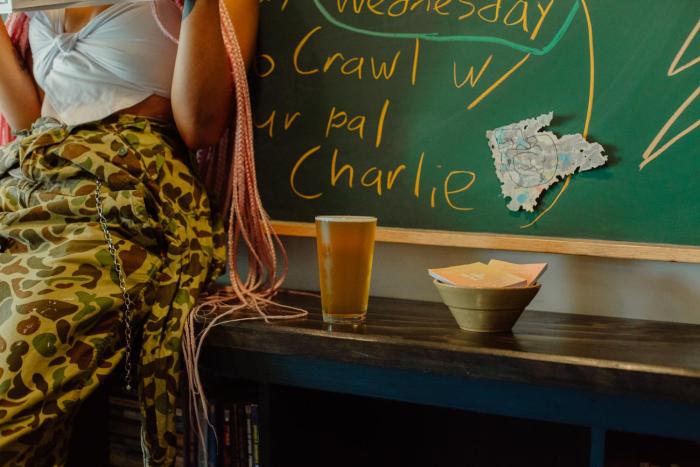 Wednesday
o Crawl w/
ur pal
Charlie